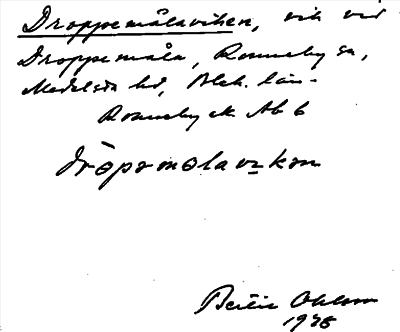 Droppemålaviken, vik vid
Droppemåla, Ronneby sn,
Medelsta hd, Blek. län.
Ronneby ek Ab 6
dròpomolavikan
Bertil Ohlson
1975